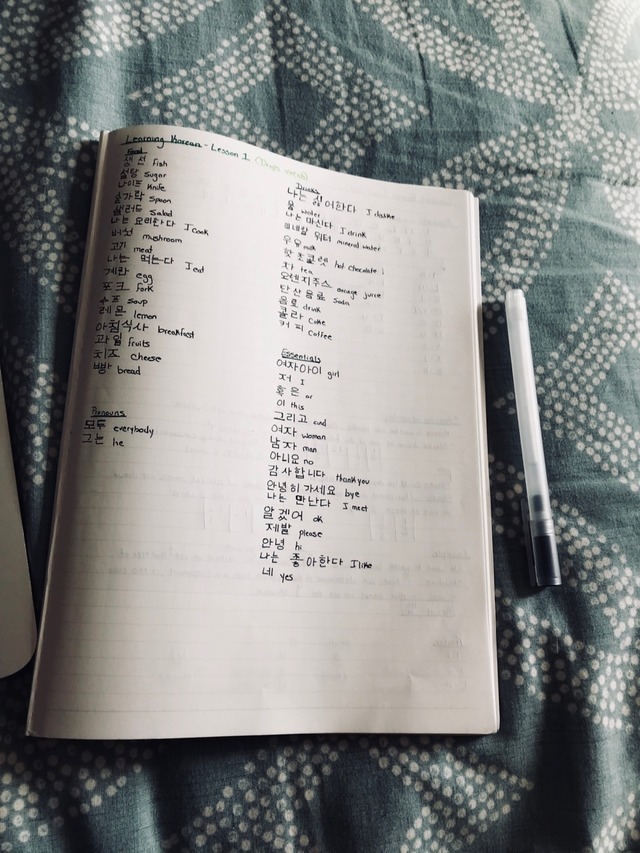 Learning Korean - Lesson 1 (Drops vocab)
Food
생선 fish
설탕 sugar
나이프 knife
숟가락 spoon
샐러드 salad
나는 요리한다 I cook
버섯 mushroom
고기 meat
나는 먹는다 I eat
계란 egg
포크 fork
수프 soup
레몬 lemon
아침식사 breakfast
과일 fruits
치즈 cheese
빵 bread
Pronouns
모두 everybody
그는 he
Drinks
나는 싫어한다 I dislike
물 water
나는 마신다 I drink
미네랄 워터 mineral water
우유 milk
핫 초콜렛 hot chocolate
차 tea
오렌지주스 orange juice
탄산음료 soda
음료 drink
콜라 coke
커피 coffee
Essentials
여자아이 girl
저 I
혹은 or
이 this
그리고 and
여자 woman
남자 man
아니요 no
감사합니다 thank you
안녕히 가세요 bye
나는 만난다 I meet
알겠어 ok
제발 please
안녕 hi
나는 좋아한다 I like
네 yes